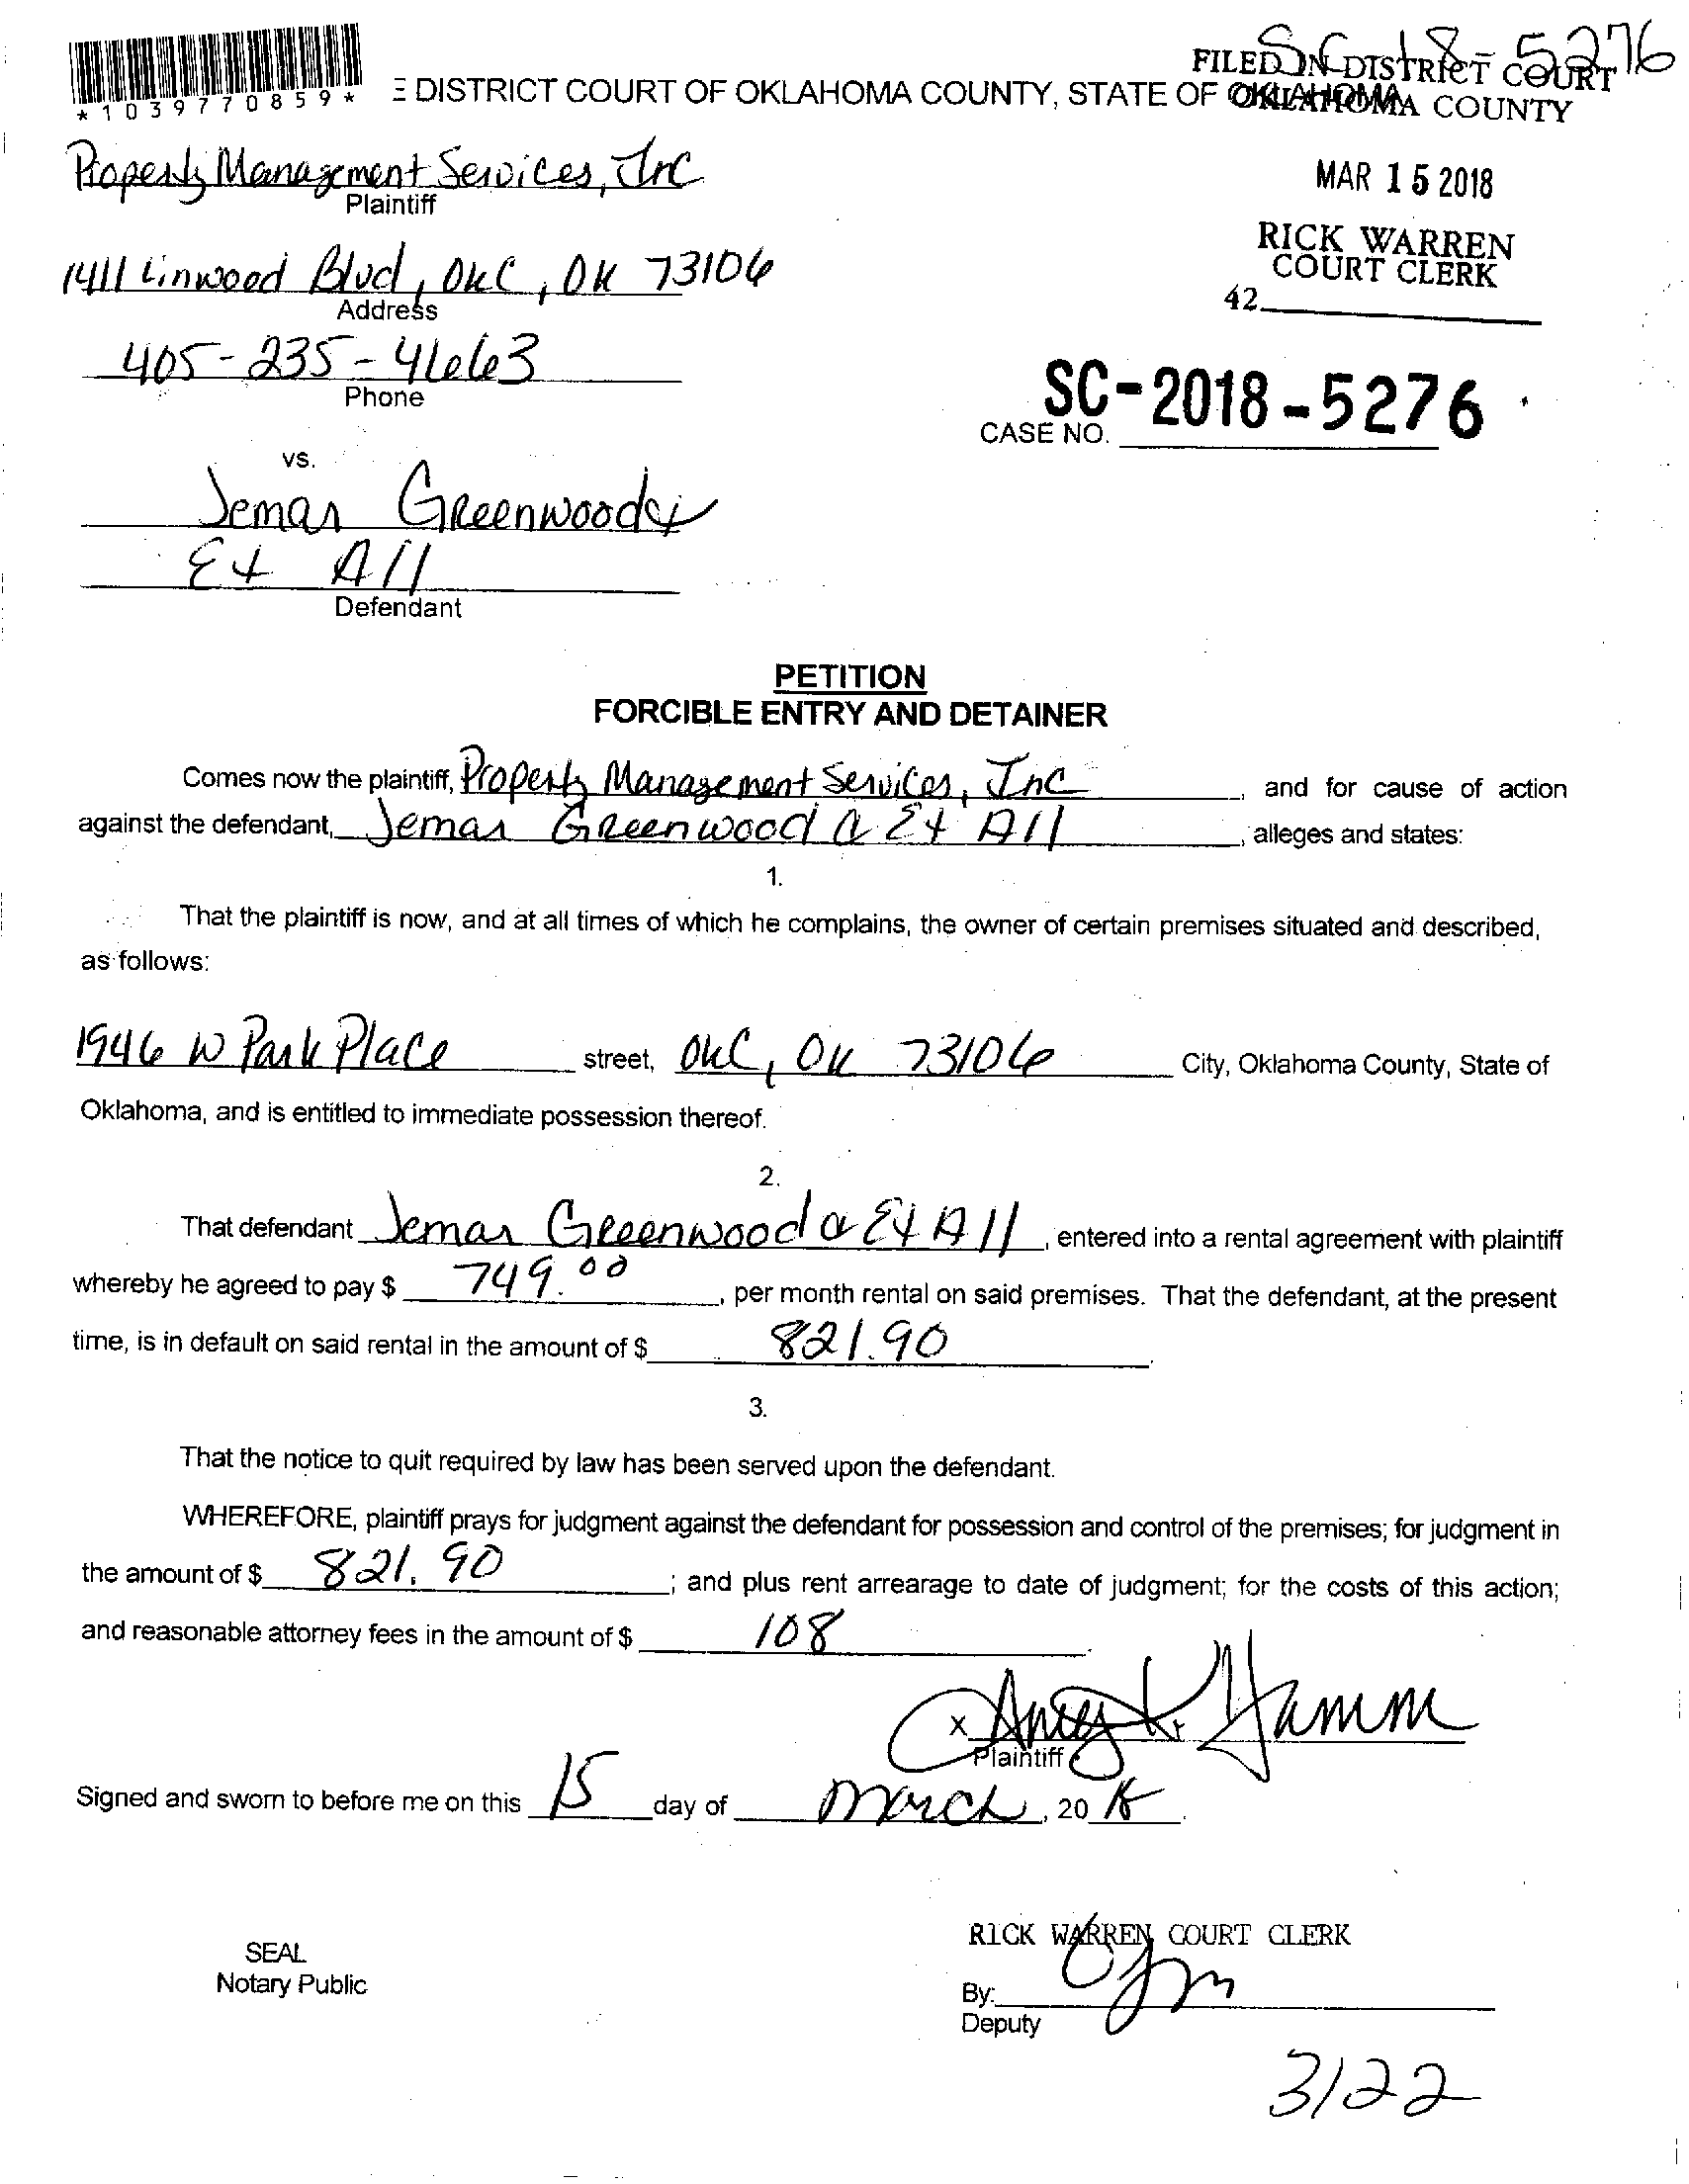 SC-18-5276
FILED IN DISTRICT COURT
OKLAHOMA COUNTY
*1039770859*
E DISTRICT COURT OF OKLAHOMA COUNTY, STATE OF OKLAHOMA
Property Management Services, Inc
Plaintiff
MAR 15 2018
RICK WARREN
COURT CLERK
42
1411 Linwood Blvd, OKC, OK 73106
Address
405-235-4663
Phone
SC-2018-5276
CASE NO.
vs.
Jemar Greenwood &
Et All
Defendant
PETITION
FORCIBLE ENTRY AND DETAINER
Comes now the plaintiff, Property Management Services, Inc, and for cause of action
against the defendant, Jemar Greenwood & Et All, alleges and states:
1.
That the plaintiff is now, and at all times of which he complains, the owner of certain premises situated and described,
as follows:
1946 W Park Place street, OKC, OK 73106 City, Oklahoma County, State of
Oklahoma, and is entitled to immediate possession thereof.
2.
That defendant Jemar Greenwood & Et All, entered into a rental agreement with plaintiff
whereby he agreed to pay $ 749.00, per month rental on said premises. That the defendant, at the present
time, is in default on said rental in the amount of $ 821.90.
3.
That the notice to quit required by law has been served upon the defendant.
WHEREFORE, plaintiff prays for judgment against the defendant for possession and control of the premises; for judgment in
the amount of $ 821.90; and plus rent arrearage to date of judgment; for the costs of this action;
and reasonable attorney fees in the amount of $ 108.
x Hamm
Plaintiff
Signed and sworn to before me on this 15 day of March, 2018.
RICK WARREN COURT CLERK
SEAL
Notary Public
By:
Deputy
3/22